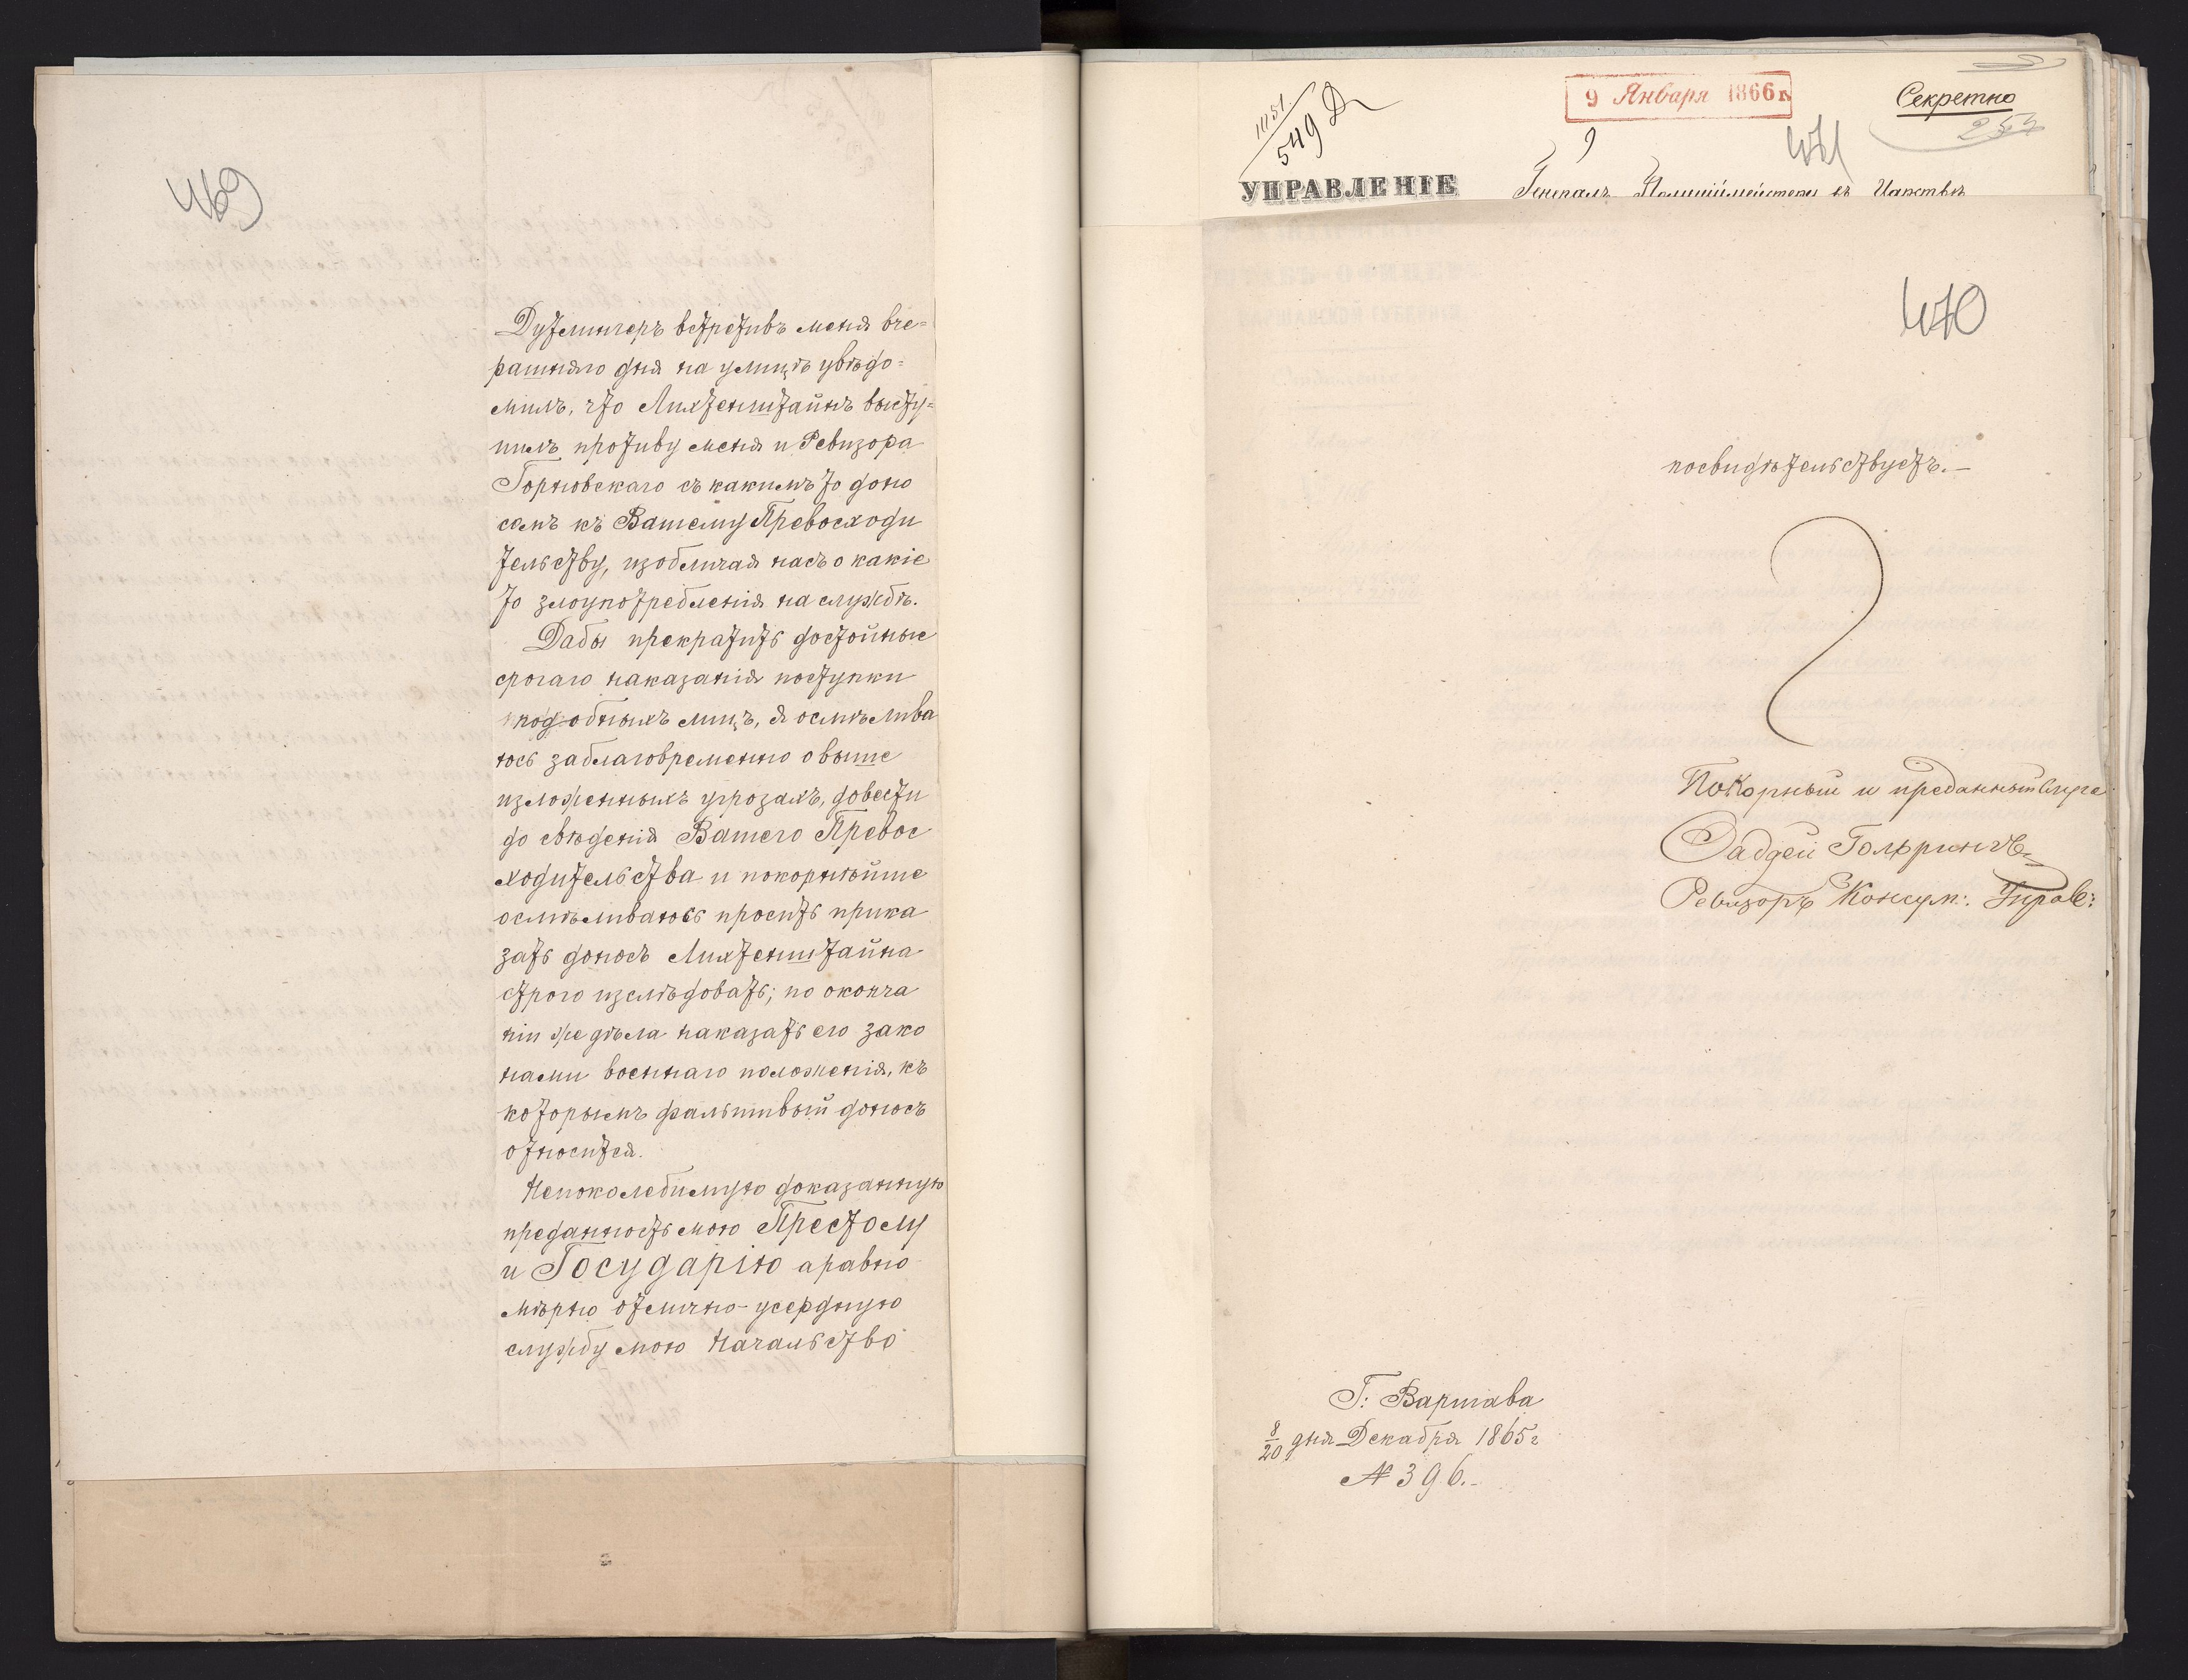 469
Дутлингеръ встретивъ меня вче=
рашняго дня на улицѣ увѣдо=
милъ, что Лихтенштайнъ высту=
пилъ противу меня и Ревизора
Горновскаго съ какимъ то доно
самъ къ Вашему Превосходи
тельству, изобличая насъ о какіе
то злоупотребленія на службѣ.
Дабы прекратить достойные
срогаго наказанія поступки
подобныхъ лицъ, я осмѣлива
юсь заблаговременно о выше
изложенныхъ угрозахъ, довести
до свѣденія Вашего Превос
ходительства и покорнѣйше
осмѣливаюсь просить прика
зать доносъ Лихтенштайна
строго изслѣдовать; по оконча
ніи же дѣла наказать его зако
нами военнаго положенія, къ
которымъ фальшивый доносъ
относится.
Непоколебимую доказанную
преданность мою Престолу
и Государію а равно
мѣрно отлично-усердную
службу мою Начальство
549 Д
9 Января 1866 г.
Секретно
9
471
УПРАВЛЕНІЕ
Генералъ Полиціймейстеру въ Царствѣ
470
посвидѣтельствуетъ.—
Покорный и преданный слуга
Фаддей
Ревизоръ Консум: Управ:
Г: Варшава
8/20 дня Декабря 1865 г
№ 396.-